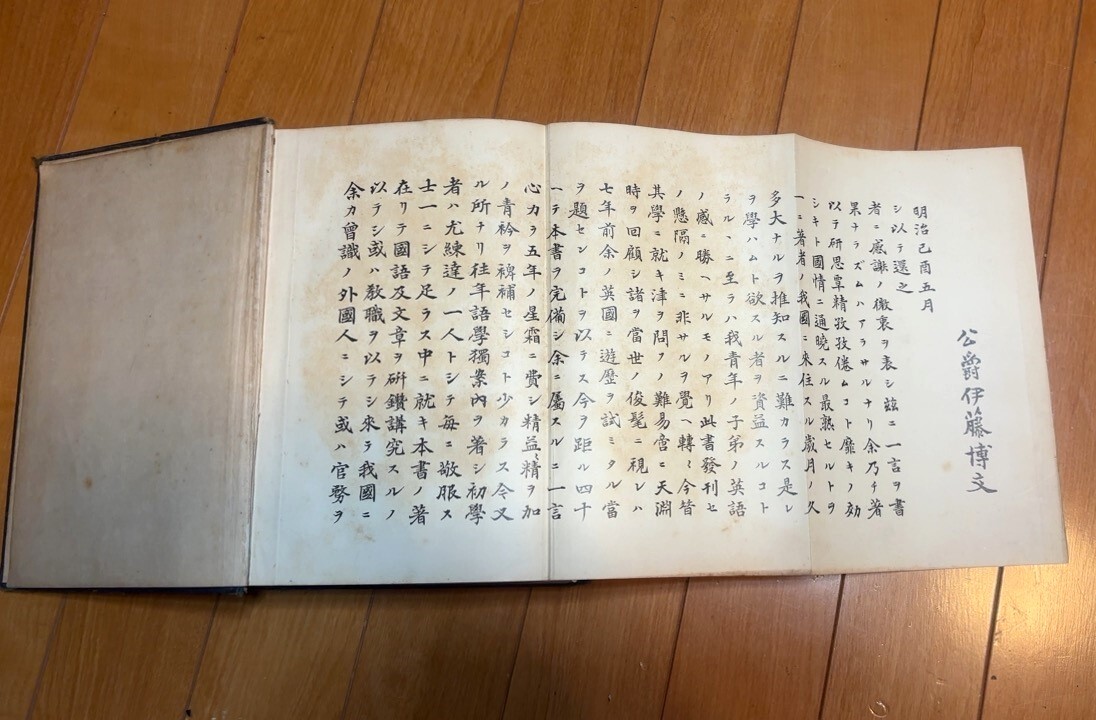 余カ曾識ノ外國人ニシテ或ハ官務ヲ
以テシ或ハ教職ヲ以テシ來テ我國ニ
在リテ國語及文章ヲ研鑽講究スルノ
士一ニシテ足ラス中ニ就キ本書ノ著
者ハ尤練達ノ一人トシテ每ニ敬服ス
ル所ナリ往年語學獨案內ヲ著シ初學
ノ青衿ヲ裨補セシコト少カラス今又
心力ヲ五年ノ星霜ニ費シ精益〻精ヲ加
ヘテ本書ヲ完備シ余ニ屬スルニ一言
ヲ題センコトヲ以テス今ヲ距ル四十
七年前余ノ英國ニ遊歷ヲ試ミタル當
時ヲ回顧シ諸ヲ當世ノ俊髦ニ視レハ
其學ニ就キ津ヲ問フノ難易啻ニ天淵
ノ懸隔ノミニ非サルヲ覺ヘ轉〻今昔
ノ感ニ勝ヘサルモノアリ此書發刊セ
ラルヽニ至ラハ我青年ノ子弟ノ英語
ヲ學ハムト欲スル者ヲ資益スルコト
多大ナルヲ推知スルニ難カラス是レ
一ニ著者ノ我國ニ來住スル歲月ノ久
シキト國情ニ通曉スル最熟セルトヲ
以テ研思覃精孜孜倦ムコト靡キノ効
果ナラズムハアラサルナリ余乃チ著
者ニ感謝ノ微衷ヲ表シ玆ニ一言ヲ書
シ以テ還之
明治己酉五月
公爵伊藤博文